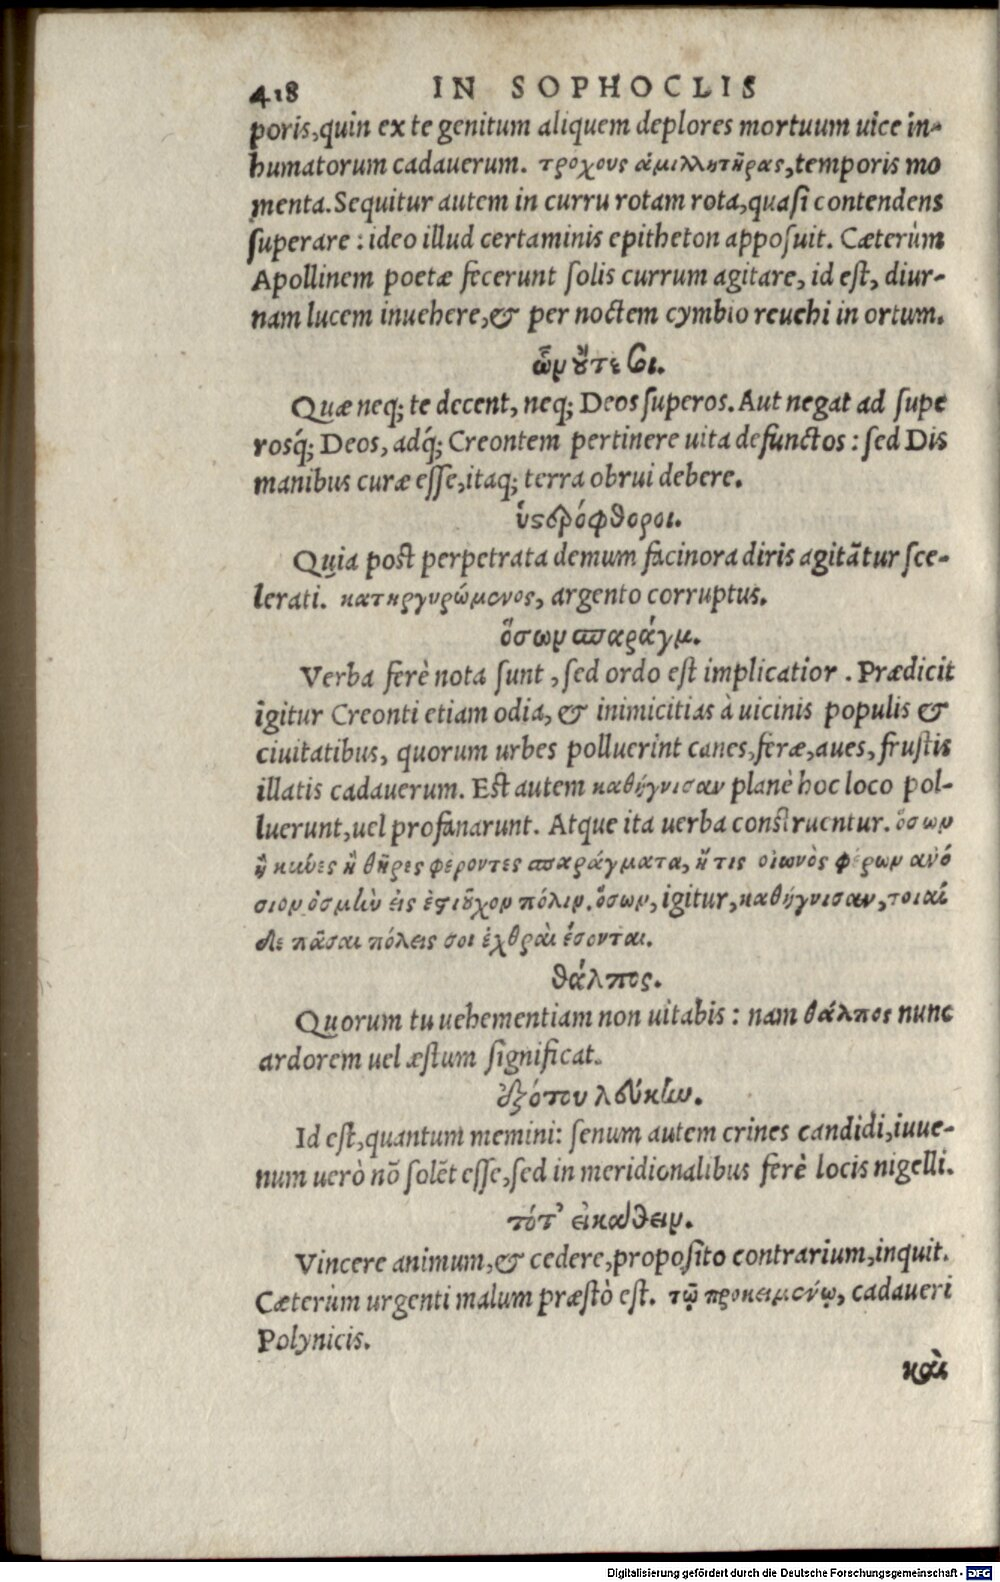 418 IN SOPHOCLIS
poris, quin ex te genitum aliquem deplores mortuum uice in-
humatorum cadauerum. τρόχους ἁμιλλητῆρας, temporis mo
menta. Sequitur autem in curru rotam rota, quasi contendens
superare: ideo illud certaminis epitheton apposuit. Cæterùm
Apollinem poetæ fecerunt solis currum agitare, id est, diur-
nam lucem inuehere, & per noctem cymbio reuehi in ortum.
ὧν οὔτε σοι.
Quæ neq; te decent, neq; Deos superos. Aut negat ad supe
rosq́; Deos, adq́; Creontem pertinere uita defunctos: sed Dis
manibus curæ esse, itaq; terra obrui debere.
ὑστερόφθοροι.
Quia post perpetrata demum facinora diris agitãtur sce-
lerati. κατηργυρώμενος, argento corruptus.
ὅσων σπαράγμ.
Verba ferè nota sunt, sed ordo est implicatior. Prædicit
igitur Creonti etiam odia, & inimicitias à uicinis populis &
ciuitatibus, quorum urbes polluerint canes, feræ, aues, frustis
illatis cadauerum. Est autem καθήγνισαν planè hoc loco pol-
luerunt, uel profanarunt. Atque ita uerba construentur. ὅσων
ἢ κύνες ἢ θῆρες φέροντες σπαράγματα, ἤ τις οἰωνὸς φέρων ἀνό
σιον ὀσμὴν εἰς ἑστιοῦχον πόλιν. ὅσων, igitur, καθήγνισαν, τοιαί
δε πᾶσαι πόλεις σοι ἐχθραὶ ἔσονται.
θάλπος.
Quorum tu uehementiam non uitabis: nam θάλπος nunc
ardorem uel æstum significat.
ἐξότου λευκὴν.
Id est, quantum memini: senum autem crines candidi, iuue-
num uerò nõ solẽt esse, sed in meridionalibus ferè locis nigelli.
τότ' εἰκαθεῖν.
Vincere animum, & cedere, proposito contrarium, inquit.
Cæterùm urgenti malum præstò est. τῷ προκειμένῳ, cadaueri
Polynicis.
καὶ
Digitalisierung gefördert durch die Deutsche Forschungsgemeinschaft - DFG